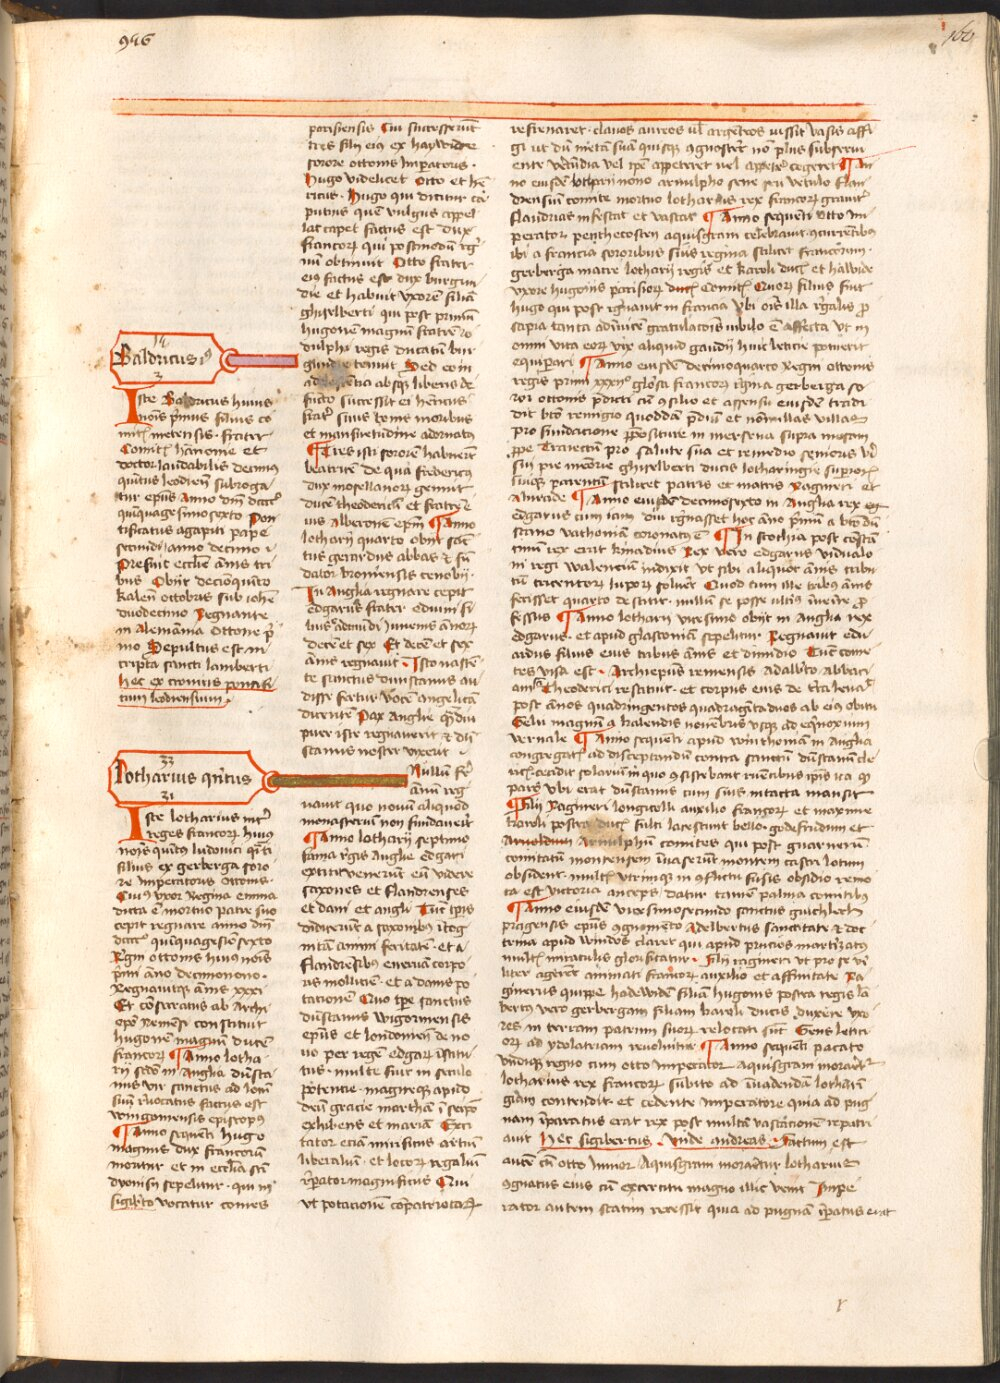 956
160
14
Baldricus i9
3
Iste Baldricus huius
nois primus filius co
mitis metensis · frater
Comitis hanonie et
doctor laudabilis decimus
quintus leodien subroga
tur epus Anno dni
quinquagesimosexto Pon
tificatus agapiti pape
secundi anno decimo i
Prefuit ecclie annis tri
bus Obijt decioquinto
kalen ottobris sub iohe
duodecimo Regnante
in Alemania Ottone p
mo Sepultus est in
cripta sancti lamberti
hec ex cronicis pontifi
cum leodiensium ·
33
Lotharius quintus
31
Iste lotharius inter
reges francorum huius
nois quintus ludouici quarti
filius ex gerberga soro
re Imperatoris Ottonis ·
Cuius vxor Regina emma
dicta e mortuo patre suo
cepit regnare anno dni
quinquagesio sexto
Regni ottonis huius nois
primi ano decimonono ·
Regnauitque annis xxxi
Et consecratus ab Archi
epo Remensi constituit
hugonem magnum ducem
francorum Anno lotha
rij sedm in Anglia dunsta
nus vir sanctus ad locum
suum reuocatus factus est
wingornensis episcopus
Anno sequenti hugo
magnus dux francorum
moritur et in ecclesia sancti
dyonisij sepelitur · qui in
sigiberto vocatur comes
parisiensis Cui successerunt
tres filij eius ex haywidge
sorore ottonis Imperatoris ·
hugo videlicet Otto et hen
ricus · hugo qui dicitur ca
putius quem vulgus appel
lat capet factus est dux
francorum qui postmodum reg
num obtinuit Otto frater
eius factus est dux burgun
die et habuit vxorem filiam
ghiselberti qui post primum
hugonem magnum fratrem ro
dulphi regis ducatum bur
gundie tenuit Sed eo in
adolescentia absque liberis de
functo successit ei henricus
frater suus bonis moribus
et mansuetudine adornatus
Tres isti sororem habuerunt
beatricem de qua fredericus
dux mosellanorum genuit
ducem theodericum et fratrem e
ius alberonem epum Anno
lotharij quarto obijt sanc
tus gerardus abbas et fun
dator broniensis cenobij ·
In Anglia regnare cepit
edgarus frater eduini fi
lius edmundi Iuuenis annorum
decem et sex Et decem et sex
annis regnauit · Isto nascen
te sanctus dunstanus au
disse fertur vocem angelicam
dicentem Pax Anglie quamdiu
puer iste regnauerit et dun
stanus noster vixerit
Nullum fere
annum reg
nauit quo nouum aliquod
monasterium non fundauerit
Anno lotharij septimo
fama regis Anglie edgari
excitati venerunt eum videre
saxones et flandrenses
et dani et angli Tunc ipsi
didicerunt a saxonibus incog
nitam animi feritatem · et a
flandrensibus eneruem corpo
ris molliciem · et a danis po
tacionem Quo tempore sanctus
dunstanus wigorniensis
epus et londoniensis de no
uo per regem edgarum institu
tus · multe fuit in seculo
potencie · magneque apud
deum gracie martham in seipso
exhibens et mariam Exci
tator eciam mirificus artium
liberalium · et locorum regalium
reparator magnificus Qui
vt potacionem compatriotarum
refrenaret · clauos aureos vel argenteos iussit vasis affi
gi ut dum metam suam quisque cognosceret non plus subserui
ente verecundia vel ipse appeteret vel appetere cogeret An
no eiusdem lotharij nono arnulpho sene seu vetulo flan
drensium comite mortuo lotharius rex francorum grauiter
flandrias infestat et vastat Anno sequenti Otto im
perator penthecosten aquisgrani celebrauit · occurrentibus
ibi a francia sororibus suis regina scilicet francorum ·
gerberga matre lotharij regis et karoli ducis et hawide
vxore hugonis parisiorum ducis comitis Quorum filius fuit
hugo qui post regnauit in francia Vbi omnis illa regalis pro
sapia tanta adinuicem gratulationis iubilo est affecta vt in
omni vita eorum vix aliquid gaudij huic leticie potuerit
equiperari Anno eiusdem decimoquarto Regni ottonis
regis primi xxxiijo gloriosa francorum regina gerberga so
ror ottonis predicti cum consilio et assensu eiusdem tradi
dit beato remigio quoddam predium et nonnullas villas
pro fundacione prepositure in mersena supra mosam
prope Traiectum pro salute sua et remedio senioris viri
sui pie memorie ghiselberti ducis lotharingie superioris
suique parentum scilicet patris et matris Ragineri et
alueride Anno eiusdem decimosexto in Anglia rex
edgarus cum iam diu regnasset hoc anno primum a beato dun
stano bathonia coronatus est In scothia post constan
tinum rex erat kinadius Rex vero edgarus Iudualo
ni regi walencium indixit vt sibi aliquot annis tribu
tum trecentorum luporum solueret Quod cum ille tribus annis
fecisset quarto destitit · nullum se posse vltius inuenire pro
fessus Anno lotharij vicesimo obijt in Anglia rex
edgarus · et apud glasconiam sepelitur Regnauit edu
ardus filius eius tribus annis et dimidio Tunc come
tes visa est · Archiepus remensis adalbero abbaci
am theoderici restituit · et corpus eius de thalena
post annos quadringentos quadragintaduos ab eius obitu
Gelu magnum a kalendis nouembris vsque ad equinoxium
vernale Anno sequenti apud winthoniam in Anglia
congregatis ad disceptandum contra sanctum dunstanum cle
ricis cecidit solarium in quo consistebant ruentibus ipsis ita quod
pars vbi erat dunstanus cum suis intacta mansit
Filij Ragineri longicolli auxilio francorum et maxime
karoli postea ducis fulti lacessunt bello · godefridum et
Arnoldum Arnulphum comites qui post guarnerum
comitatum montensem inuaserunt montem castri locum
obsident · multis vtrimque in conflictu fusis obsidio remo
ta est victoria anceps · datur tamen palma comitibus
Anno eiusdem vicesimosecundo sanctus guicherth
pragensis epus cognomento Adelbertus sanctitate et doc
trina apud winidos claret qui apud prucios martirizatus
multis miraculis glorificatur · Filij ragineri vt pro se vi
liter agerent animati francorum auxilio et affinitate Ra
ginerus quippe hadewidem filiam hugonis postea regis lam
bertus vero gerbergam filiam karoli ducis duxere vxo
res in terram patrum suorum relocati sunt Gens leticie
orum ad ydolatriam reuoluitur Anno sequenti pacato
vndique regno cum otto Imperator Aquisgrani moraretur
lotharius rex francorum subito ad inuadendam lotharin
giam contendit · et cedente Imperatore quia ad pug
nam imparatus erat rex post multam vastacionem repatri
auit Hec sigibertus · Vnde andreas · Factum est
autem cum otto Iunior Aquisgrani moraretur lotharius
cognatus eius cum exercitu magno illic venit Impe
rator autem statim recessit quia ad pugnam imparatus erat
r